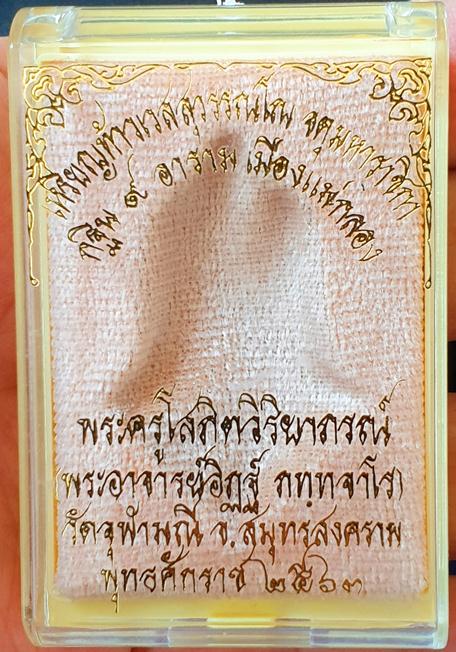 เหรียญท้าวเวสสุวรรณโณ จตุมหาราชิกา
กฐิน ๙ อาราม เมืองแม่กลอง
พระครูโสภิตวิริยาภรณ์
(พระอาจารย์อิฏฐ์ ภทฺทจาโร)
วัดจุฬามณี จ.สมุทรสงคราม
พุทธศักราช ๒๕๖๓